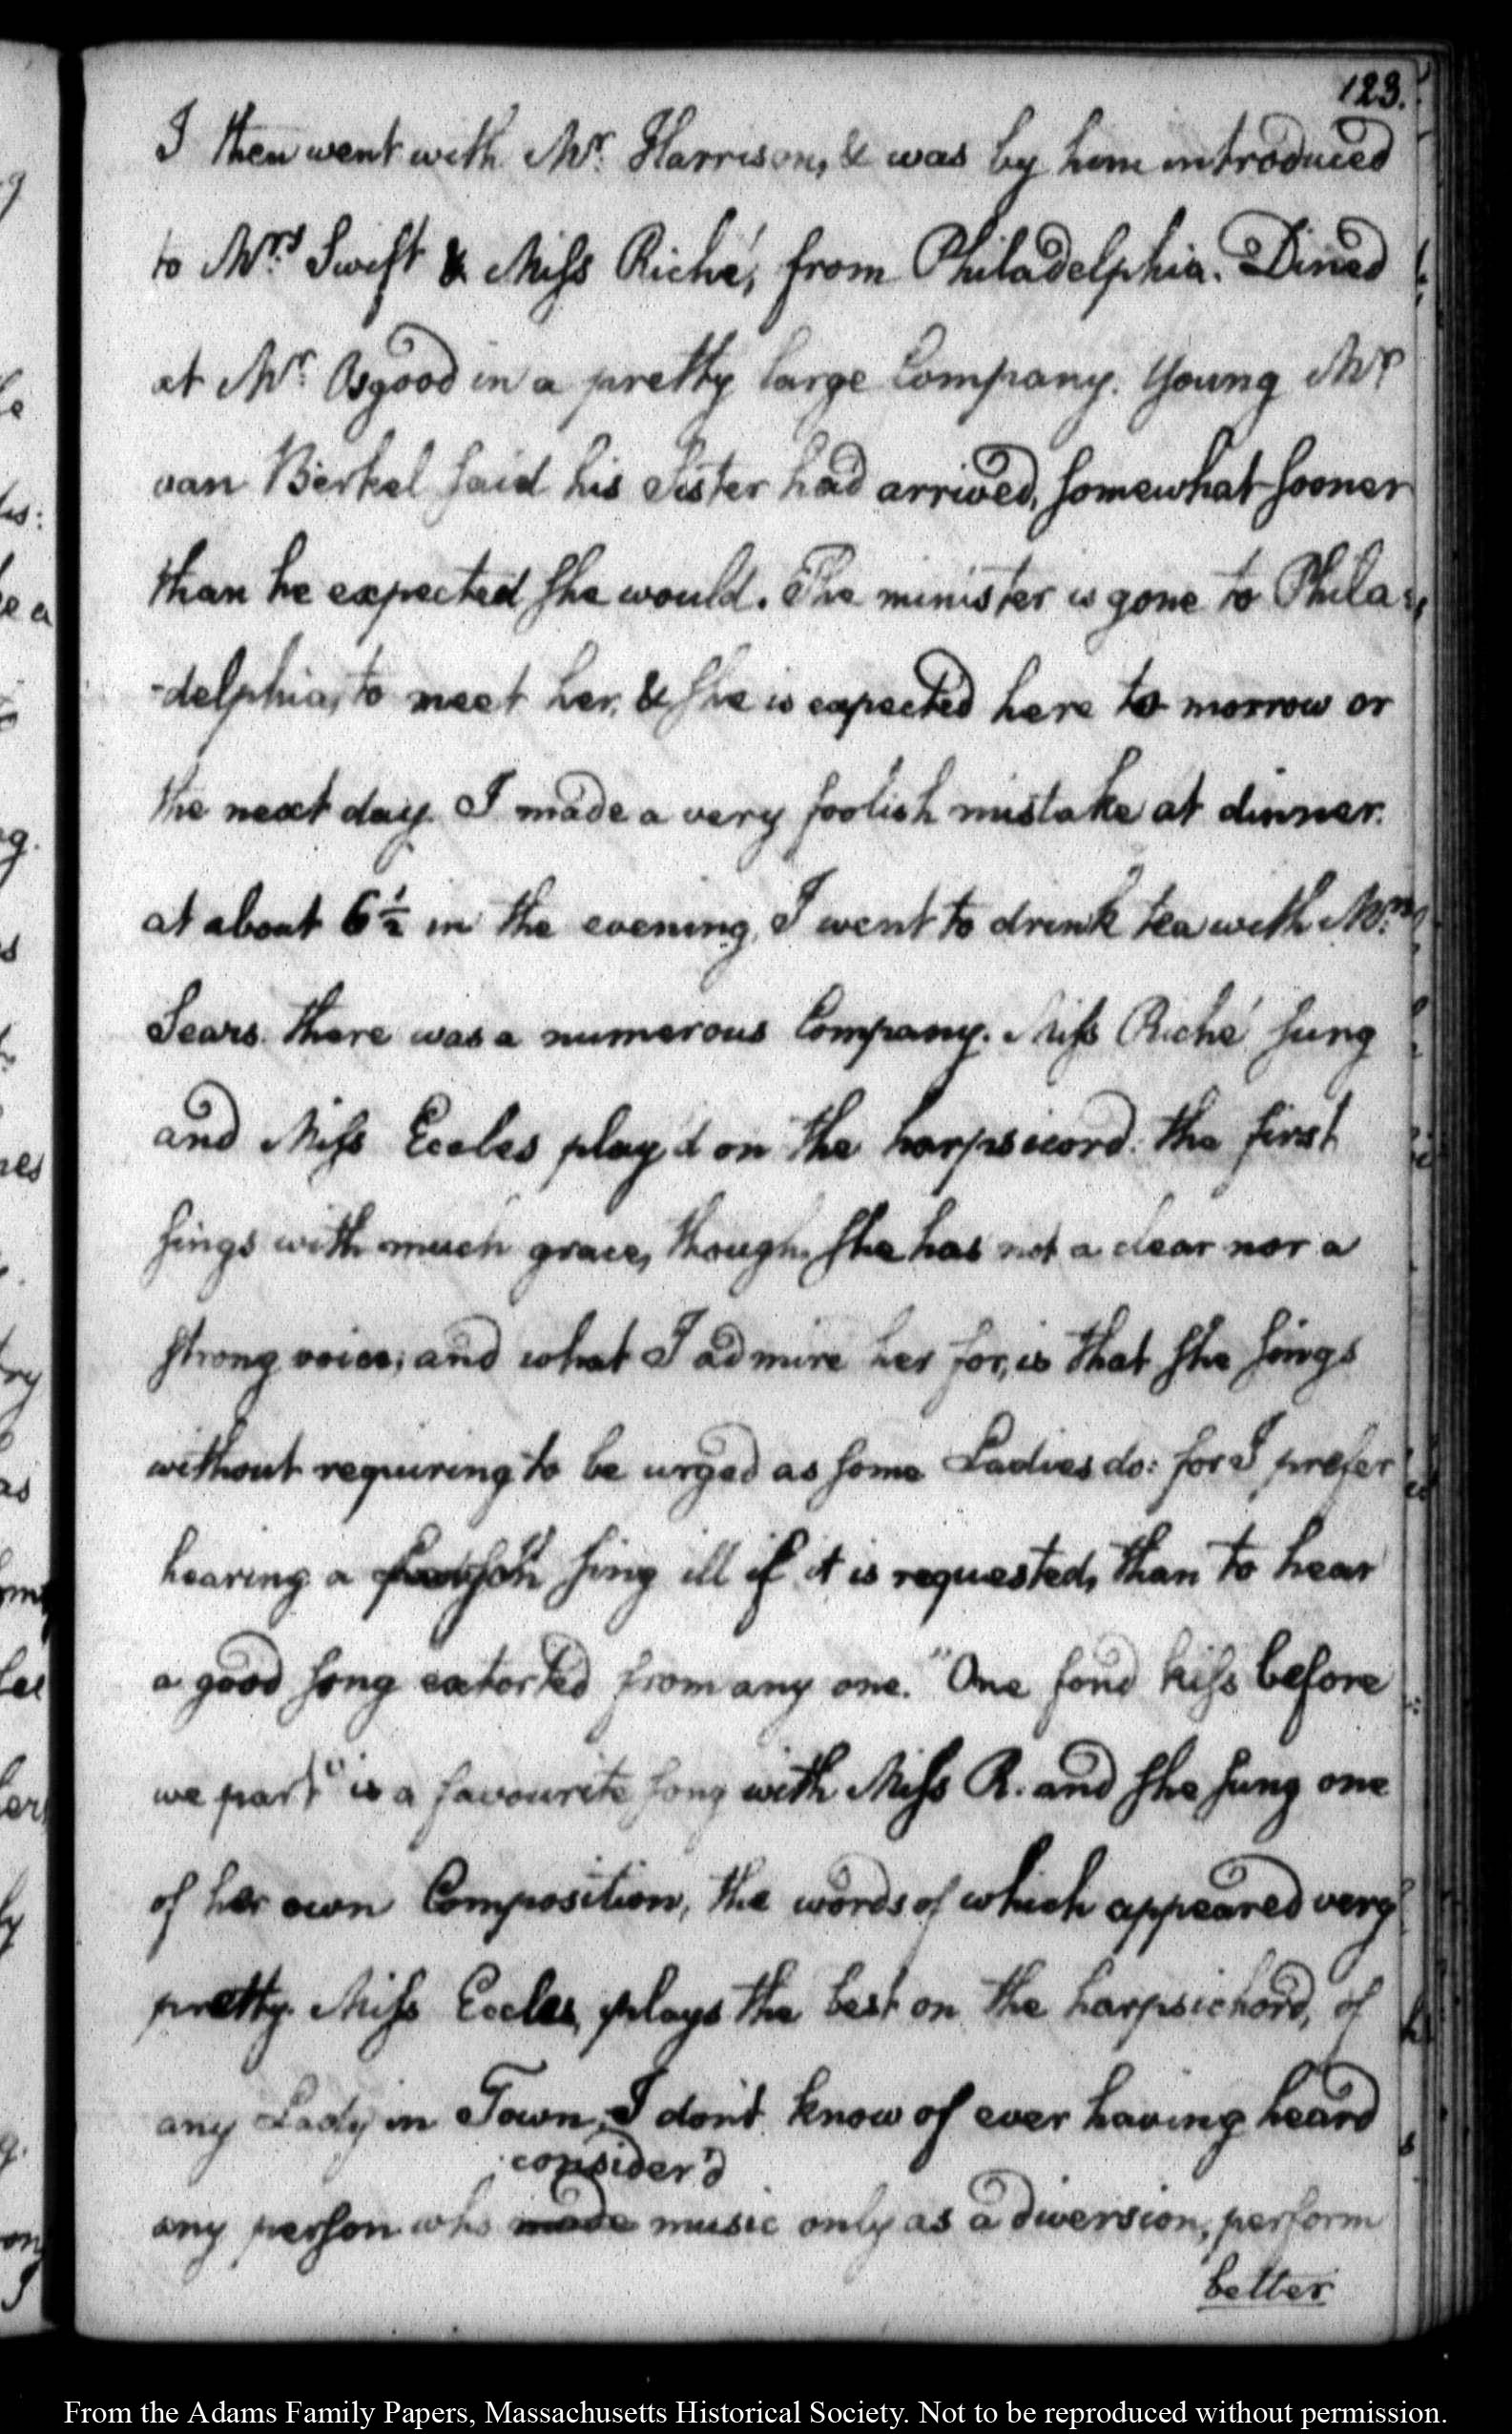 123.
I then went with Mr. Harrison, & was by him introduced
to Mrs. Swift & Miss Riché, from Philadelphia. Dined
at Mr. Osgood in a pretty large Company. Young Mr.
van Berkel said his Sister had arrived, somewhat sooner
than he expected she would. The minister is gone to Phila-
-delphia, to meet her, & she is expected here to morrow or
the next day. I made a very foolish mistake at dinner.
at about 6½ in the evening, I went to drink tea with Mrs.
Sears. there was a numerous Company. Miss Riché sung
and Miss Eccles play'd on the harpsicord. the first
sings with much grace, though she has not a clear nor a
strong voice; and what I admire her for, is that she sings
without requiring to be urged as some Ladies do: for I prefer
hearing a person sing ill if it is requested, than to hear
a good song extorted from any one. "One fond kiss before
we part" is a favourite song with Miss R. and she sung one
of her own Composition, the words of which appeared very
pretty. Miss Eccles, plays the best on the harpsichord, of
any Lady in Town, I don't know of ever having heard
consider'd
any person who made music only as a diversion, perform
better
From the Adams Family Papers, Massachusetts Historical Society. Not to be reproduced without permission.